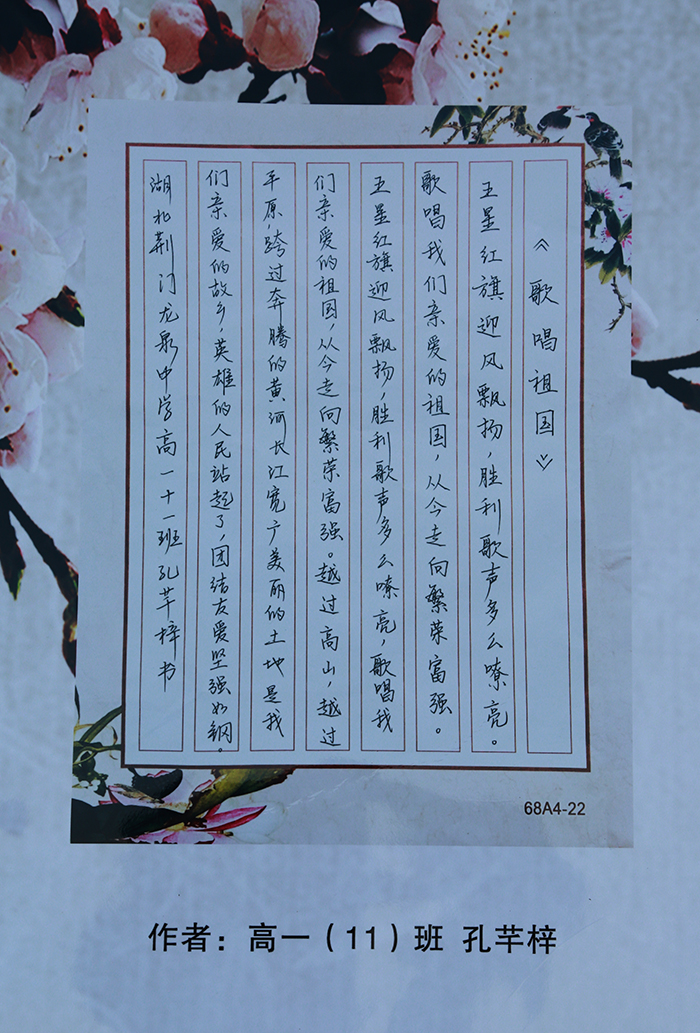 《歌唱祖国》
五星红旗迎风飘扬，胜利歌声多么嘹亮。
歌唱我们亲爱的祖国，从今走向繁荣富强。
五星红旗迎风飘扬，胜利歌声多么嘹亮，歌唱我
们亲爱的祖国，从今走向繁荣富强。越过高山，越过
平原，跨过奔腾的黄河长江宽广美丽的土地是我
们亲爱的故乡，英雄的人民站起了，团结友爱坚强如钢。
湖北荆门龙泉中学高一十一班孔芊梓书
68A4-22
作者：高一（11）班 孔芊梓